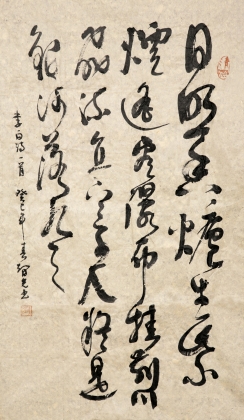 日照香炉生紫
烟遥看瀑布挂前川
飞流直下三千尺疑是
银河落九天
李白诗一首 癸巳年春